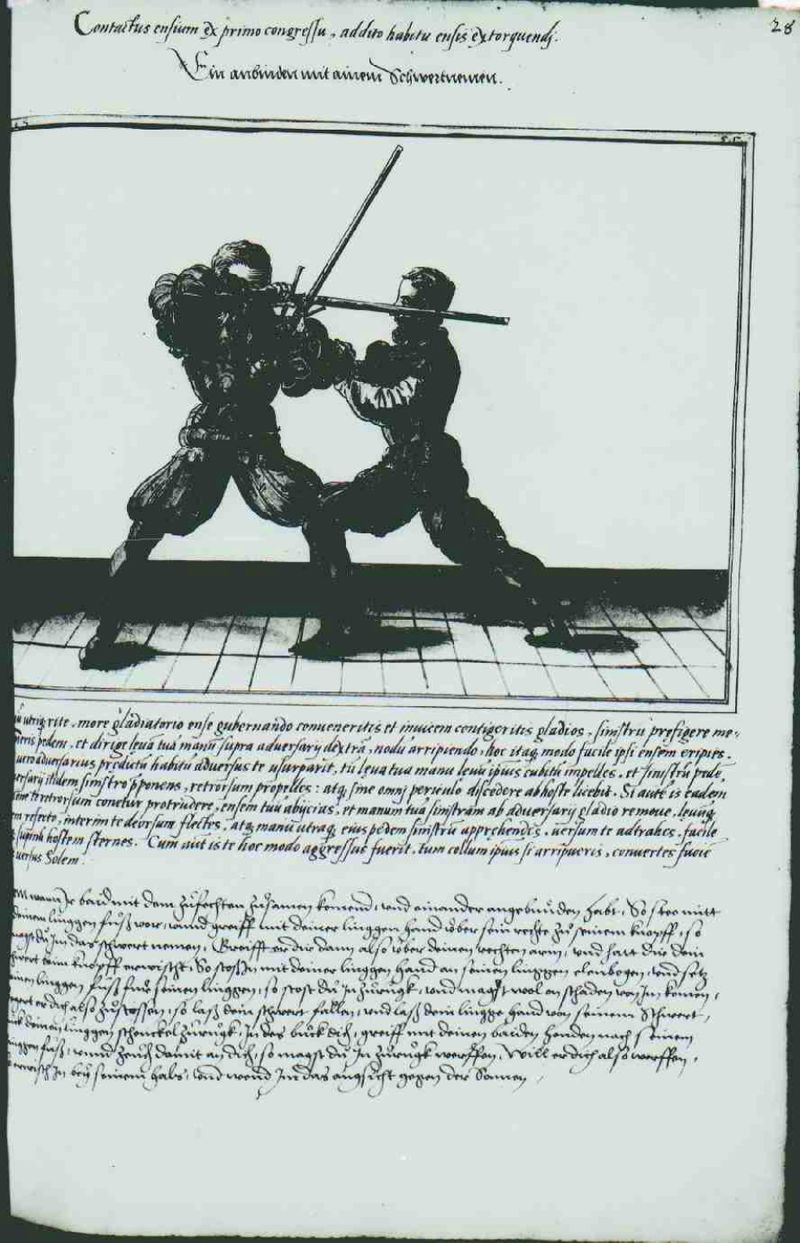 28
Contactus ensium ex primo congressu, addito habitu ensis extorquendj.
Ein anbinden mit ainem Schwertnemen.
rite, more gladiatorio ense gubernando conveneritis et invicem contigeritis gladios, sinistrū prefigere me-
pedem, et dirige leva tua manu supra adversarij dextrā, nodu arripiendo, hoc itaq modo facile ipsi ensem eripies.
adversarius predictu habitu adversus te usurparit, tu leva tua manu levu ipsius cubitu impelles, et sinistrū pede
itidem sinistro pponens, retrorsum propelles: atq sine omnj periculo discedere ab hoste licebit. Si aute is eadem
te retrorsum conetur protrudere, ensem tuu abijcias, et manum tua sinistram ab adversarij gladio remove, levuq
refecto, interim te deorsum flectes, atq manu utraq eius pedem sinistrū apprehendes, versum te adtrahes, facile
hostem sternes. Cum aut is te hoc modo aggressus fuerit, tum collum ipsius si arripueris, convertes facie
versus Solem.
wann Jr baid mit dem zufechten zusamen komend, und ainander angebunden habt, So stee mitt
deinem linggen fuß vor, unnd greiff mit deiner linggen hand uber sein rechte zu seinem knopff, so
magst du Im das schwert nemen, Greifft er dir dann also uber deinen rechten arm, und hatt dir dein
schwert beim knopff erwischt, So stoß In mit deiner linggen hand an seinen linggen elnbogen, und setz
deinen linggen fuß fur seinen linggen, so stost du In zurugk, und magst wol on schaden von Im komen,
er dich also zustossen, so laß dein schwert fallen, und laß dein lingge hand von seinem Schwert,
deinen linggen schenckel zuruugk, In des buck dich, greiff mit deinen baiden henden nach seinem
linggen fuß, unnd zeuch damit an dich, so magst du In zurugk werffen, Will er dich also werffen,
erwisch In bey seinem hals, und wend Im das angsicht gegen der Sonnen,